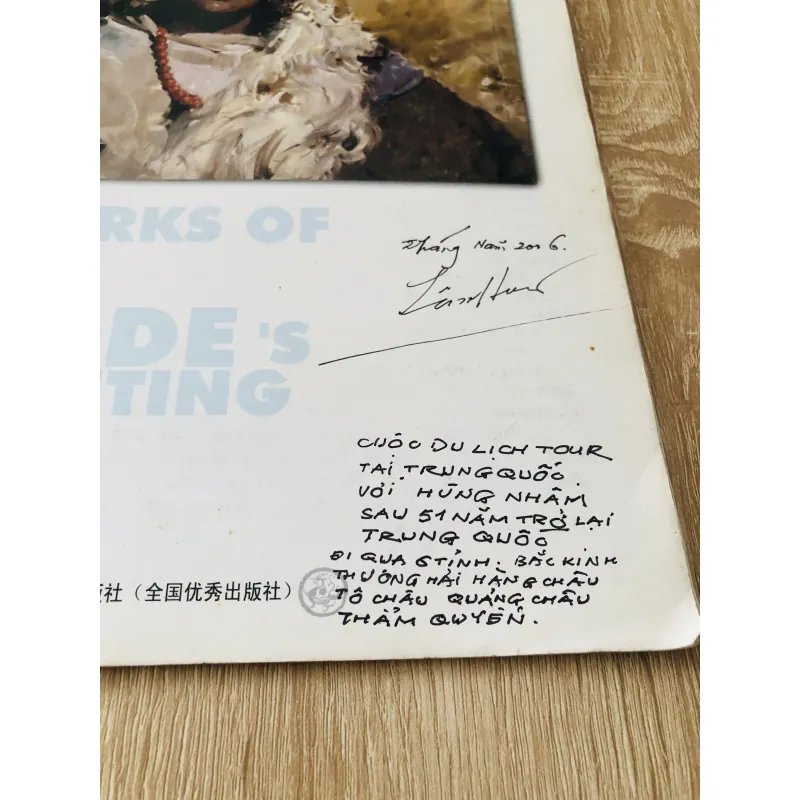 RKS OF
DE'S
TING
Tháng Năm 2006.
CUỘC DU LỊCH TOUR
TẠI TRUNG QUỐC.
VỚI HÙNG NHÂM
SAU 51 NĂM TRỞ LẠI
TRUNG QUỐC
ĐI QUA 6 TỈNH. BẮC KINH
THƯỢNG HẢI HÀNG CHÂU
TÔ CHÂU QUẢNG CHÂU
THẨM QUYẾN.
社（全国优秀出版社）